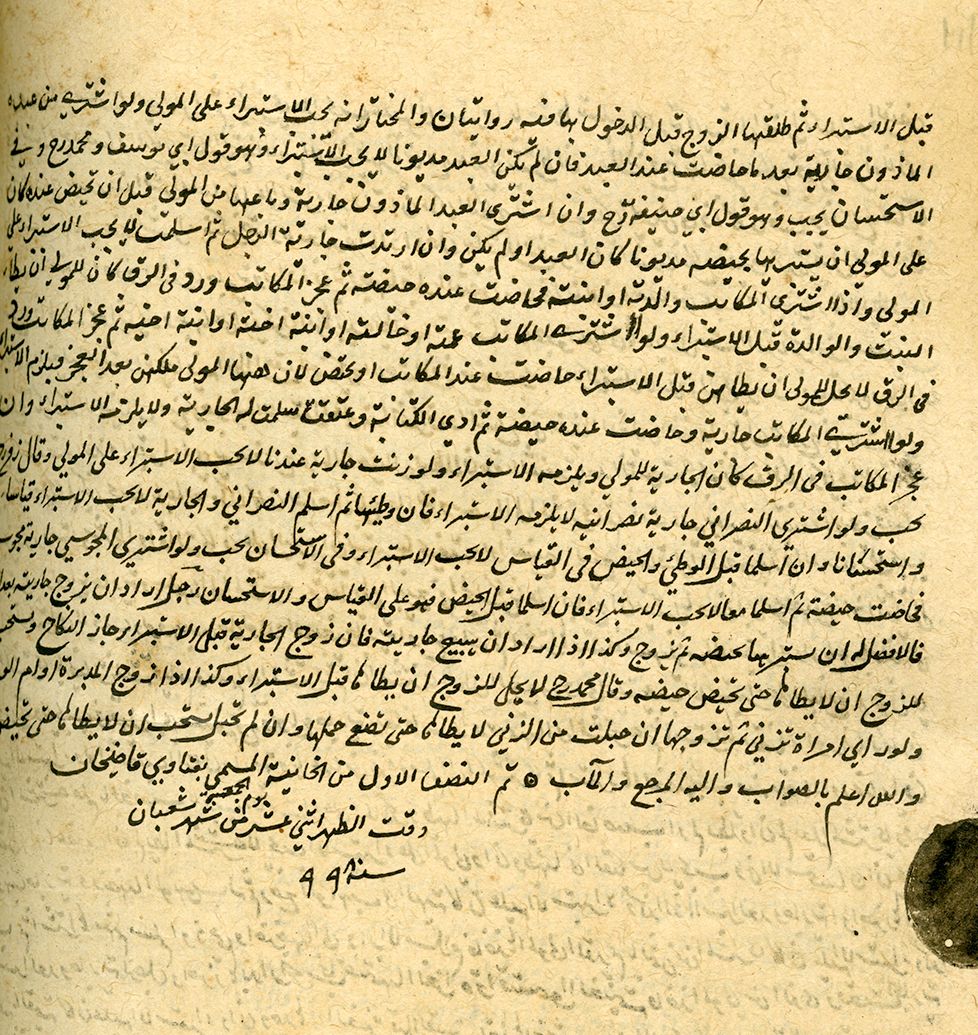 قبل الاستبراء ثم طلقها الزوج قبل الدخول بها فيه روايتان والمختار انه يجب الاستبراء على المولي ولو اشتري من عبده
الماذون جارية بعد ما حاضت عند العبد فان لم يكن العبد مديونا لا يجب الاستبراء وهو قول ابي يوسف ومحمد رح وفي
الاستحسان يجب وهو قول ابي حنيفة رح وان اشترى العبد الماذون جارية وباعها من المولي قبل ان تحيض عنده كان
على المولي ان يستبريها بحيضه مديونا كان العبد او لم يكن وان ارتدت جارية الرجل ثم اسلمت لا يجب الاستبراء على
المولي واذا اشترى المكاتب والدته او ابنته فحاضت عنده حيضة ثم عجز المكاتب ورد في الرق كان للمولي ان يطاء
البنت والوالدة قبل الاستبراء ولو اشترى المكاتب عمته او خالته او ابنة اخته او ابنة اخيه ثم عجز المكاتب ورد
في الرق لا يحل للمولى ان يطاهن قبل الاستبراء حاضت عند المكاتب او لم تحض لان ههنا المولي ملكهن بعد العجز فيلزم الاستبراء
ولو اشتري المكاتب جارية وحاضت عنده حيضة ثم ادي الكتابة وعتقت سلمت له الجارية ولا يلزمه الاستبراء وان
عجز المكاتب في الرق كان الجارية للمولي ويلزمه الاستبراء ولو زنت جارية عندنا لا يجب الاستبراء على المولي وقال زفر رح
يجب ولو اشتري النصراني جارية نصرانيه لا يلزمه الاستبراء فان وطيئها ثم اسلم النصراني والجارية لا يجب الاستبراء قياسا
واستحسانا وان اسلما قبل الوطئ والحيض في القياس لا يجب الاستبراء وفي الاستحسان يجب ولو اشتري المجوسي جارية مجوسية
فحاضت حيضة ثم اسلما معا لا يجب الاستبراء فان اسلما قبل الحيض فهو على القياس والاستحسان رجل اراد ان يزوج جاريته بعد
فالافضل له ان يستبريها بحيضه ثم يزوج وكذا اذا اراد ان يبيع جاريته فان زوج الجارية قبل الاستبراء جاز النكاح ويستحب
للزوج ان لا يطائها حتى تحيض حيضه وقال محمد رح لا يحل للزوج ان يطائها قبل الاستبراء وكذا اذا زوج المدبرة او ام الولد
ولو راي امراة تزني ثم تزوجها ان حبلت من الزني لا يطائها حتى تضع حملها وان لم تحبل استحب ان لا يطائها حتى تحيض
والله اعلم بالصواب واليه المرجع والمآب تم النصف الاول من الخانية المسمي بفتاوي قاضيخان
يوم الجمعة
وقت الظهر اثني عشر من شهر شعبان
سنة ٩٩